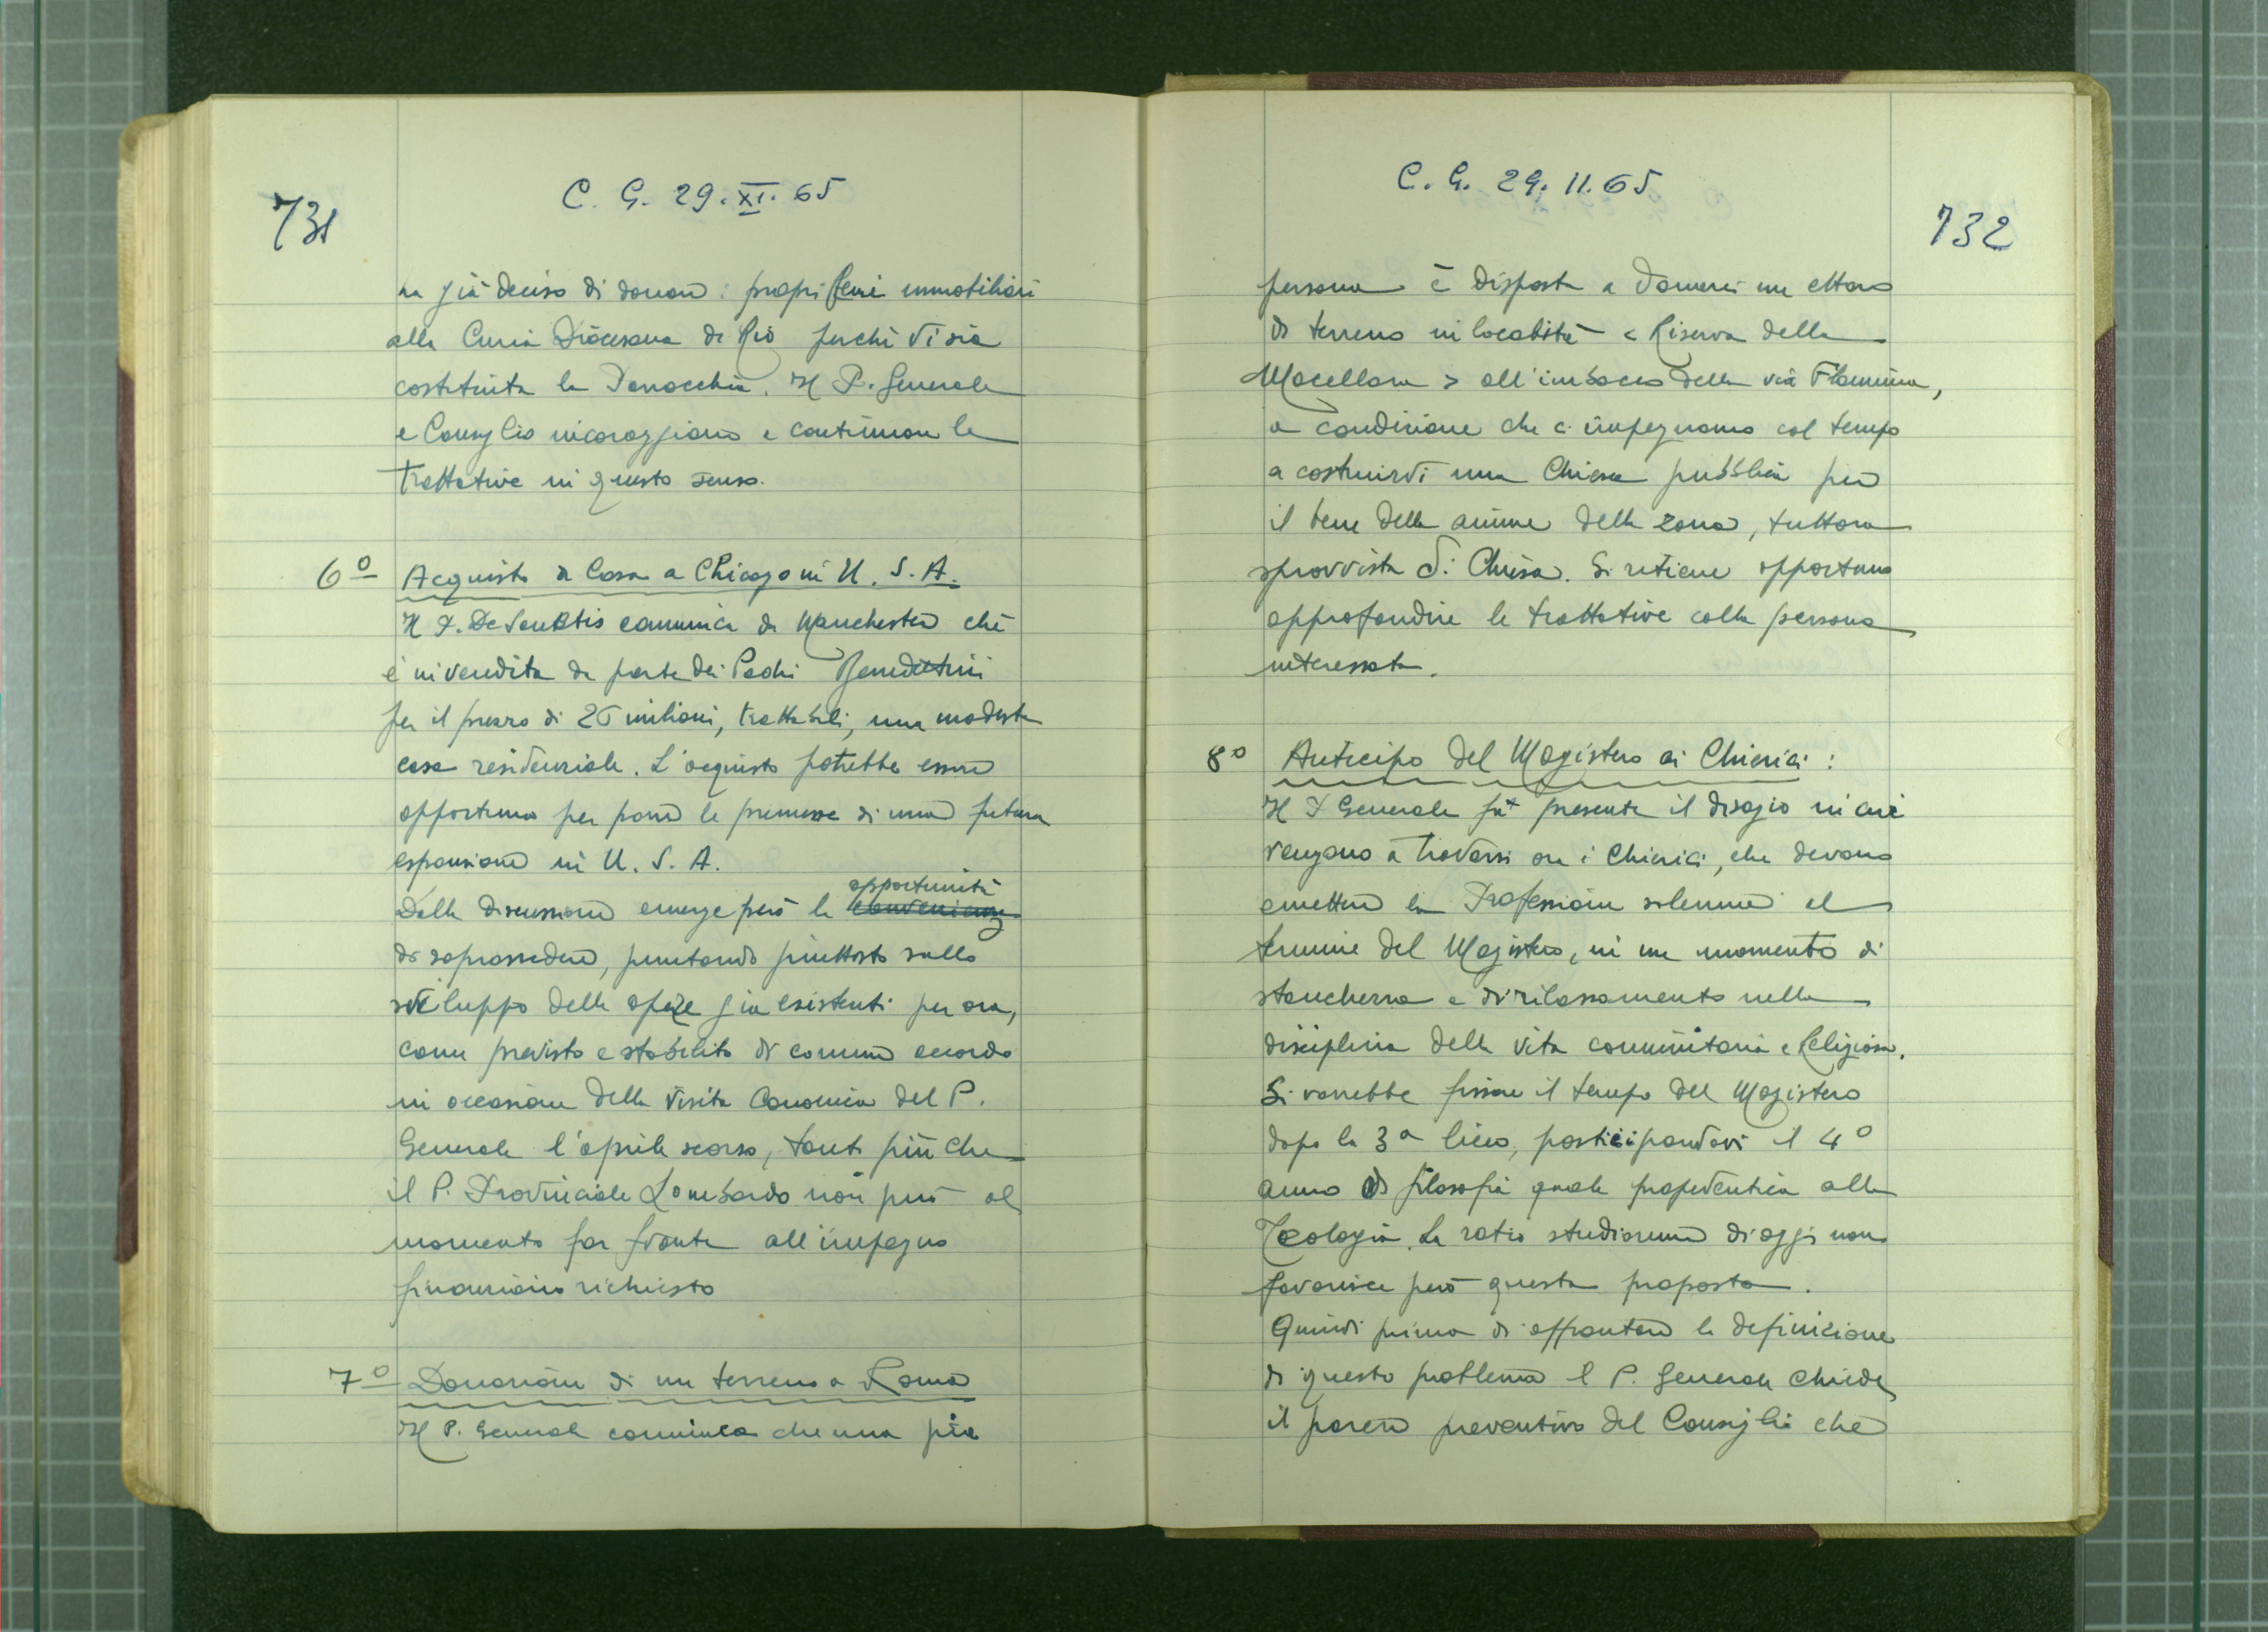 731
C. G. 29. XI. 65
ha già deciso di donare i propri beni immobiliari
alla Curia Diocesana di Rio perchè vi sia
costituita la Parrocchia. Il P. Generale
e Consiglio incoraggiano a continuare le
trattative in questo senso.
6º Acquisto di Casa a Chicago in U. S. A.
Il P. De Sanctis comunica da Manchester che
è in vendita da parte dei Padri Benedettini
per il prezzo di 25 milioni, trattabili, una modesta
casa residenziale. L'acquisto potrebbe essere
opportuno per porre le premesse di una futura
espansione in U. S. A.
opportunità
Dalla discussione emerge però la convenienza
di soprassedere, puntando piuttosto sullo
sviluppo delle opere già esistenti per ora,
come previsto e stabilito di comune accordo
in occasione della Visita Canonica del P.
Generale l'aprile scorso, tanto più che
il P. Provinciale Lombardo non può al
momento far fronte all'impegno
finanziario richiesto
7º Donazione di un terreno a Roma
Il P. Generale comunica che una pia
C. G. 29. 11. 65
732
persona è disposta a donarci un ettaro
di terreno in località < Riserva della
Macellara > all'imbocco della via Flaminia,
a condizione che ci impegniamo col tempo
a costruirvi una Chiesa pubblica per
il bene delle anime della zona, tuttora
sprovvista di Chiesa. Si ritiene opportuno
approfondire le trattative colla persona
interessata.
8º Anticipo del Magistero ai Chierici :
Il P. Generale fa presente il disagio in cui
vengono a trovarsi ora i Chierici, che devono
emettere la Professione solenne al
termine del Magistero, in un momento di
stanchezza e di rilassamento nella
disciplina della vita comunitaria e Religiosa.
Si vorrebbe fissare il tempo del Magistero
dopo la 3ª liceo, posticipandovi il 4º
anno di filosofia quale propedeutica alla
Teologia. La ratio studiorum di oggi non
favorisce però questa proposta.
Quindi prima di affrontare la definizione
di questo problema il P. Generale chiede
il parere preventivo del Consiglio che